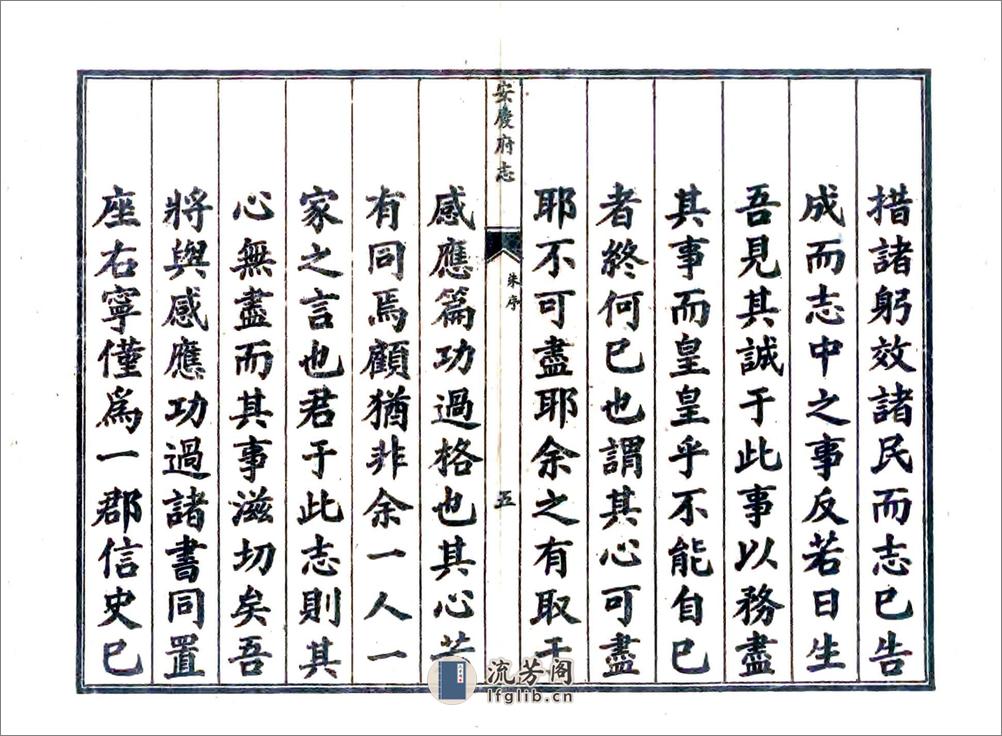 措諸躬效諸民而志已告
成而志中之事反若日生
吾見其誠于此事以務盡
其事而皇皇乎不能自已
者終何已也謂其心可盡
耶不可盡耶余之有取于
安慶府志
朱序
五
感應篇功過格也其心若
有同焉顧猶非余一人一
家之言也君于此志則其
心無盡而其事滋切矣吾
將與感應功過諸書同置
座右寧僅爲一郡信史已
流芳阁
lfglib.cn